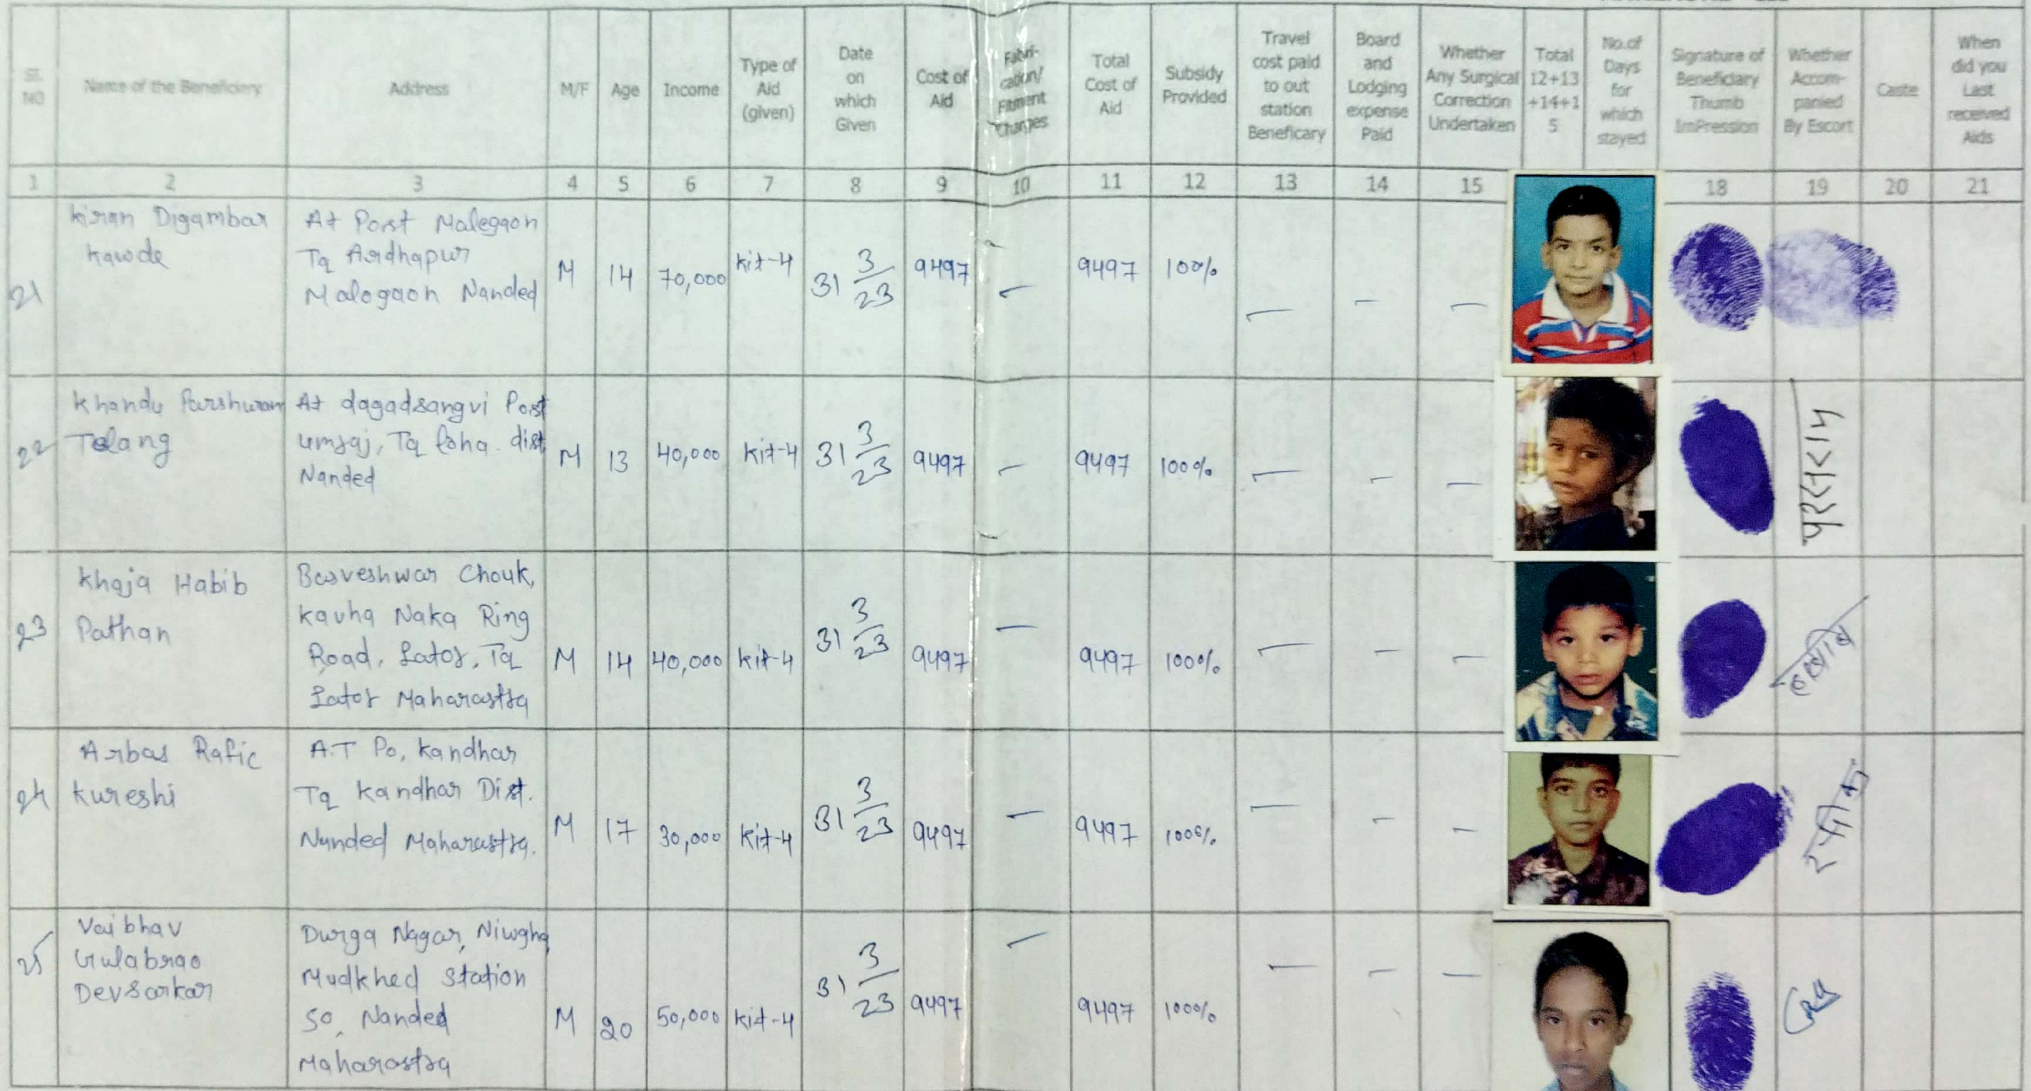 Sl. NO
Name of the Beneficiery
Address
M/F
Age
Income
Type of Aid (given)
Date on which Given
Cost of Aid
Fabri-cation/ Fitment Charges
Total Cost of Aid
Subsidy Provided
Travel cost paid to out station Beneficary
Board and Lodging expense Paid
Whether Any Surgical Correction Undertaken
Total 12+13 +14+1 5
No.of Days for which stayed
Signature of Beneficiary Thumb ImPression
Whether Accom-panied By Escort
Caste
When did you Last received Aids
1 2 3 4 5 6 7 8 9 10 11 12 13 14 15 18 19 20 21
21
Kiran Digambar
Kawde
At Post Malegaon
Tq Ardhapur
Malegaon Nanded
M 14 70,000 Kit-4 31 3/23 9497 — 9497 100% — — —
22
Khandu Parshuram
Telang
At dagadsangvi Post
umraj, Tq loha. dist
Nanded
M 13 40,000 Kit-4 31 3/23 9497 — 9497 100% — — —
परसराम
23
Khaja Habib
Pathan
Basveshwar Chouk,
Kavha Naka Ring
Road, Lator, Tq
Lator Maharastra
M 14 40,000 Kit-4 31 3/23 9497 — 9497 100% — — —
24
Arbas Rafic
Kureshi
A.T Po, Kandhar
Tq Kandhar Dist.
Nanded Maharastra.
M 17 30,000 Kit-4 31 3/23 9497 — 9497 100% — — —
25
Vaibhav
Gulabrao
Devsarkar
Durga Nagar, Niwgha
Mudkhed Station
So, Nanded
Maharastra
M 20 50,000 Kit-4 31 3/23 9497 — 9497 100% — — —